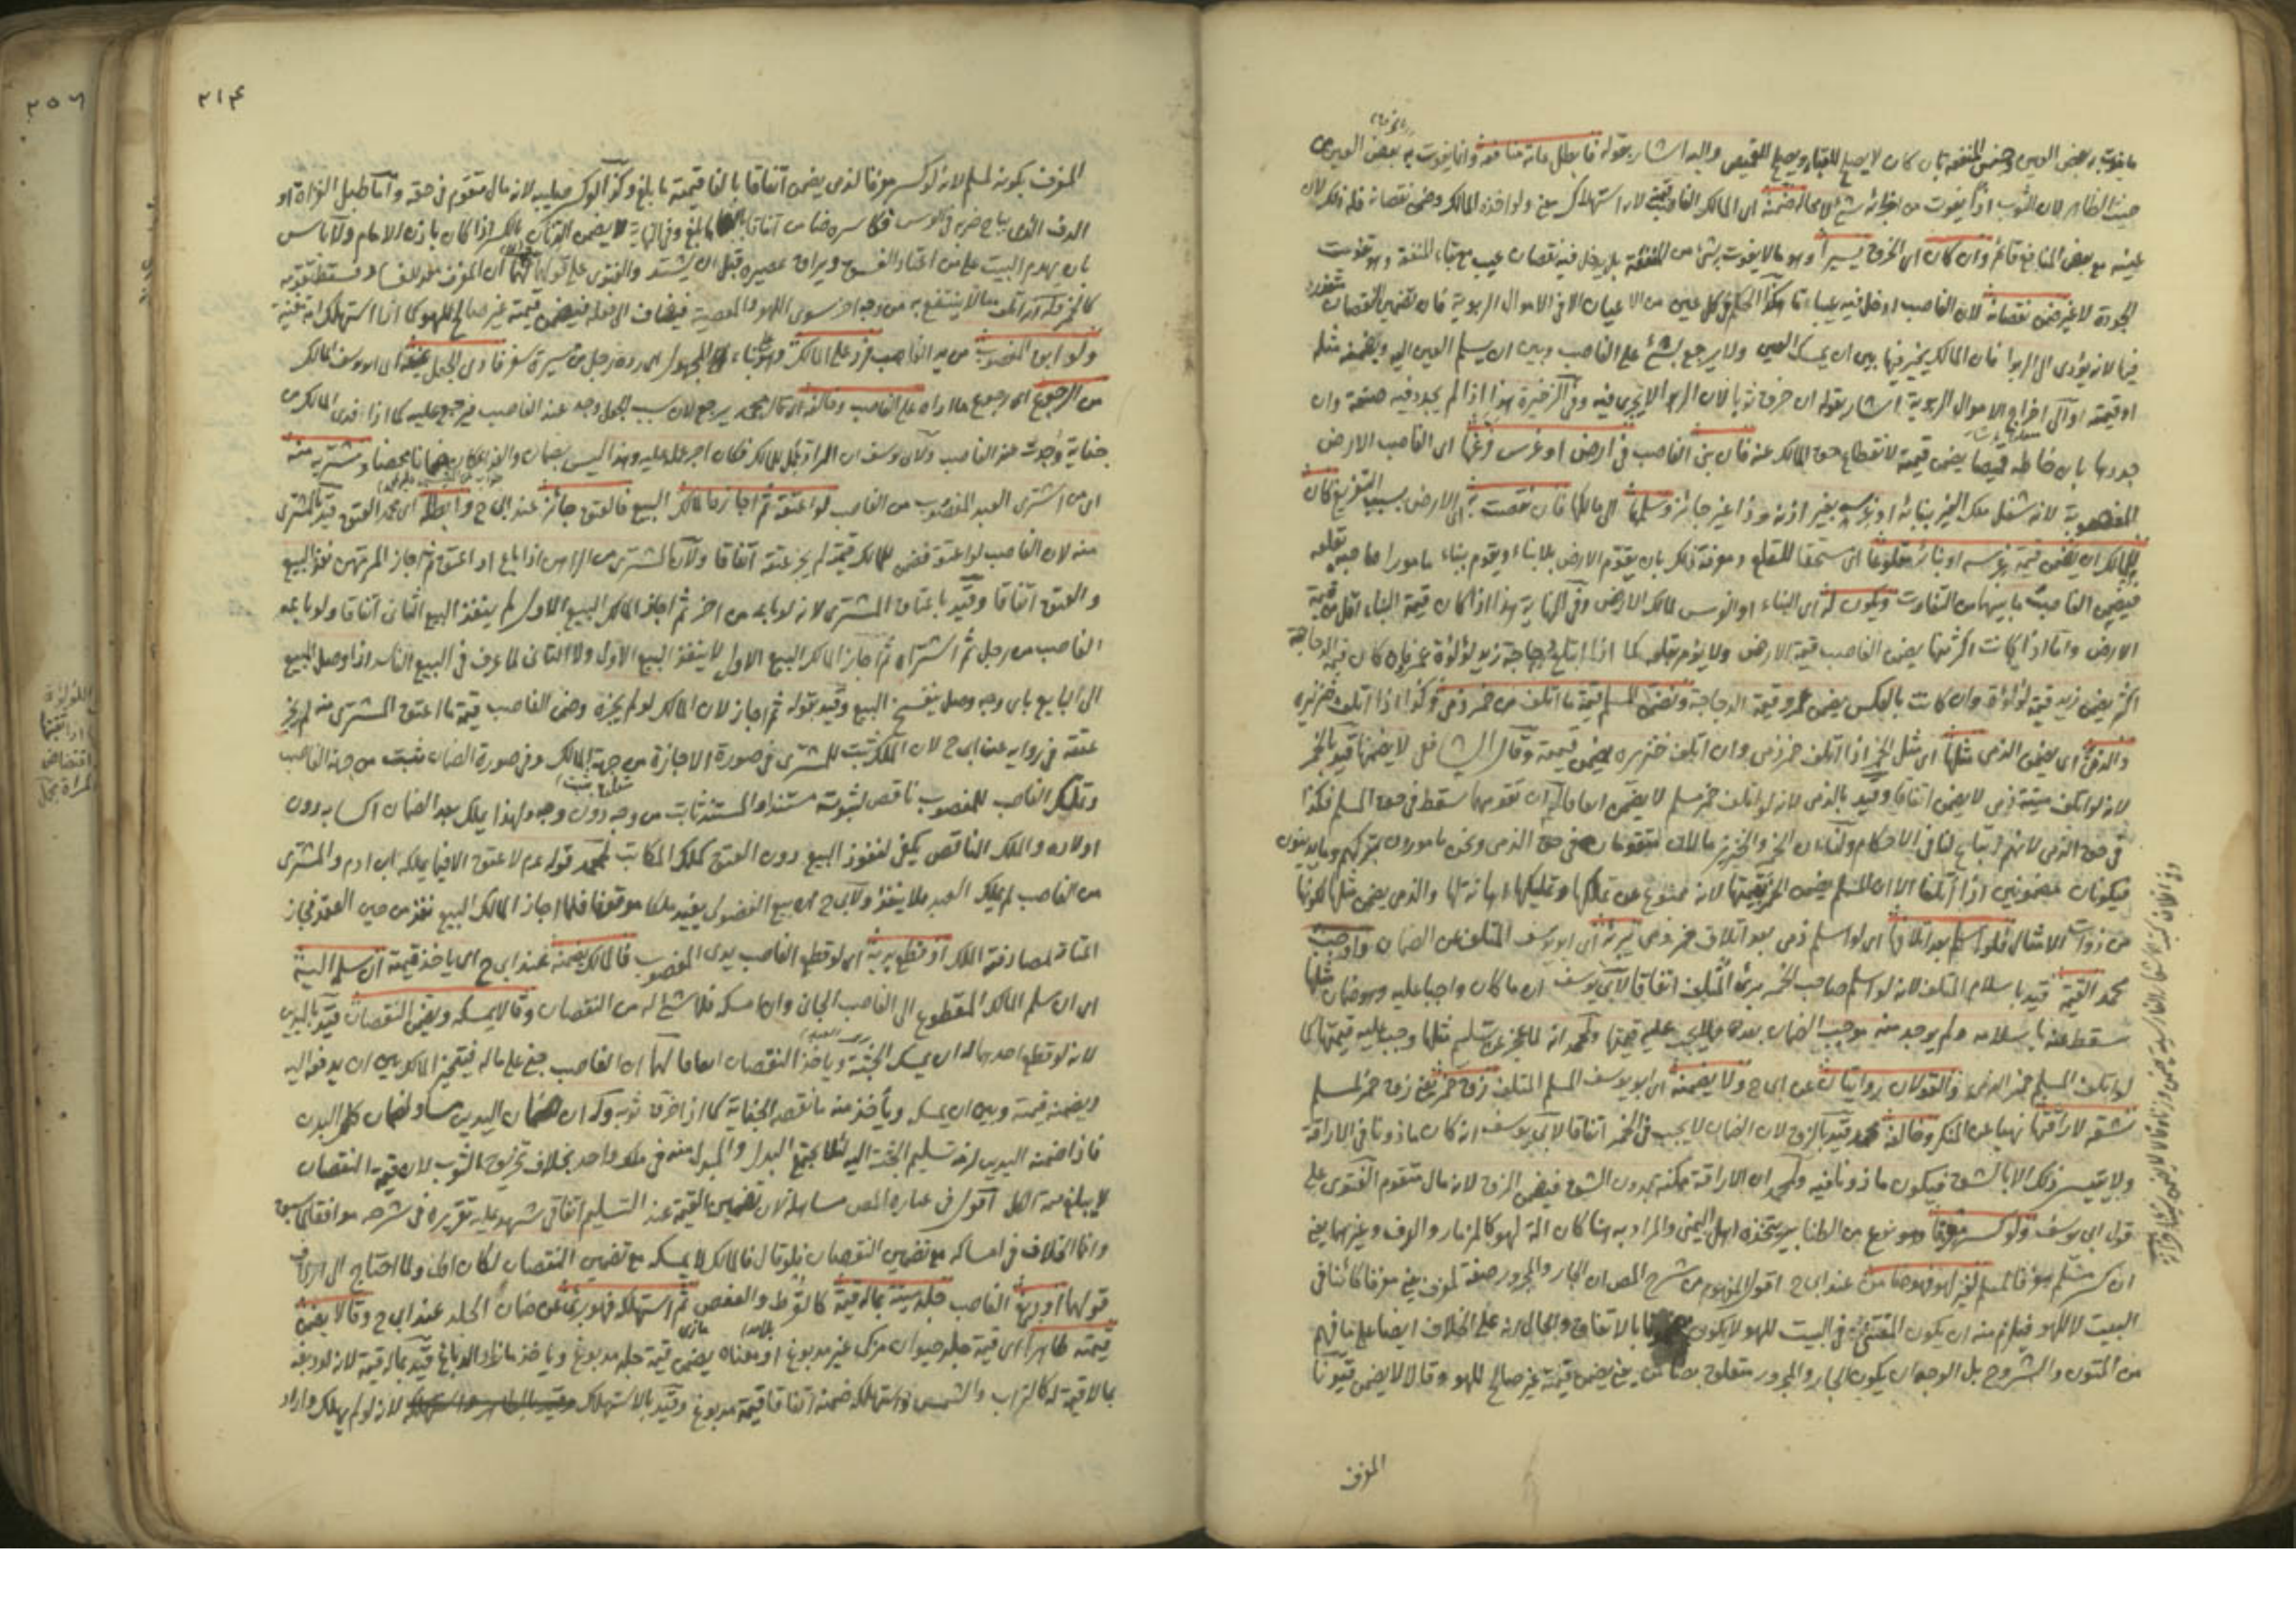 ما يفوت به بعض العين وبعض المنفعة بان كان لا يصلح للقباء ويصلح للقميص واليه اشار بقوله فابطل عامة منافعه وانما يفوت به بعض العين من
حيث الظاهر لان الثوب اذا يفوت من اجزائه شئ لا محالة ضمنه اى المالك الغاصب لانه استهلاك معنى ولو اخذه المالك وضمن نقصانه فله ذلك لان
عينه مع بعض المنافع قائم وان كان اى الخرق يسيرا وهو ما لا يفوت به شئ من المنفعة بل يدخل فيه نقصان عيب مع بقاء المنفعة وهو تفويت
الجودة لا غير ضمن نقصانه لان الغاصب ادخل فيه عيبا هكذا الحكم في كل عين من الاعيان الا في الاموال الربوية فان تضمين النقصان متعذر
فيها لانه يؤدى الى الربوا فان المالك يخير فيها بين ان يمسك العين ولا يرجع بشئ على الغاصب وبين ان يسلم العين اليه ويضمنه مثله
او قيمته والى اخراج الاموال الربوية اشار بقوله ان خرق ثوبا لان الربوا لا يجرى فيه وفى الذخيرة هذا اذا لم يجدد فيه صنعة وان
جددها بان خاطه قميصا يضمن قيمته لانقطاع حق المالك عنه فان بنى الغاصب في ارض او غرس فرغها اى الغاصب الارض
المغصوبة لانه شغل ملك الغير ببنائه او بغرسه بغير اذنه وذا غير جائز وسلمها الى مالكها فان نقصت به اى الارض بسبب التفريغ كان
للمالك ان يضمن قيمة غرسه او بنائه مقلوعا اى مستحقا للقلع ومعرفة ذلك بان يقوم الارض بلا بناء ويقوم ببناء مأمورا صاحبه بقلعه
فيضمن الغاصب ما بينهما من التفاوت ويكون له اى البناء او الغرس لمالك الارض وفى النهاية هذا اذا كان قيمة البناء اقل من قيمة
الارض واما اذا كانت اكثر منها يضمن الغاصب قيمة الارض ولا يؤمر بقلعه كما اذا ابتلع دجاجة زيد لؤلؤة عمرو فان كان قيمة الدجاجة
اكثر يضمن زيد قيمة لؤلؤة وان كانت بالعكس يضمن عمرو قيمة الدجاجة ونضمن المسلم قيمة ما اتلف من خمر ذمى وكذا اذا اتلف خنزيره
والذمى اى يضمن الذمى مثلها اى مثل الخمر اذا اتلف خمر ذمى وان اتلف خنزيره يضمن قيمته وقال الشافعى لا يضمنها قيد بالخمر
لانه لو اتلف ميتة ذمى لا يضمن اتفاقا وقيد بالذمى لانه لو اتلف خمر مسلم لا يضمن اتفاقا له ان تقومهما سقط في حق المسلم فكذا
في حق الذمى لانهم اتباع لنا في الاحكام ولنا ان الخمر والخنزير مالان متقومان في حق الذمى ونحن مأمورون بتركهم وما يدينون
فيكونان مضمونين اذا اتلفا الا ان المسلم يضمن الخمر بقيمتها لانه ممنوع عن تملكها وتمليكها اهانة لها والذمى يضمن مثلها لكونها
من ذوات الامثال فلو اسلم بعد اتلافها اى لو اسلم ذمى بعد اتلاف خمر ذمى يبرئه اى ابو يوسف المتلف عن الضمان واوجب
محمد القيمة قيد باسلام المتلف لانه لو اسلم صاحب الخمر برئ المتلف اتفاقا لابى يوسف ان ما كان واجبا عليه وهو ضمان مثلها
سقط عنه باسلامه ولم يوجد منه موجب الضمان بعده فلا يجب عليه قيمتها ولمحمد انه لما عجز عن تسليم مثلها وجب عليه قيمتها كما
لو اتلف المسلم خمر الذمى والقولان روايتان عن ابى ح ولا يضمنه اى ابو يوسف المسلم المتلف زق خمر يعنى زق خمر المسلم
شقه لاراقتها نهيا عن المنكر وخالفه محمد قيد بالزق لان الضمان لا يجب في الخمر اتفاقا لابى يوسف انه كان ماذونا في الاراقة
ولا يتيسر ذلك الا بالشق فيكون ماذونا فيه ولمحمد ان الاراقة ممكنة بدون الشق فيضمن الزق لانه مال متقوم الفتوى على
قول ابى يوسف ولو كسر معزفا وهو نوع من الطنابير يتخذه اهل اليمن والمراد به هنا كان الة لهو كالمزمار والدف وغيرهما يعنى
ان كسر مسلم معزفا لمسلم لغير لهو فهو ضامن عند ابى ح اقول المفهوم من شرح المص ان الجار والمجرور صفة لمعزف يعنى معزفا كائنا في
البيت لا للهو فيلزم منه ان يكون المقتنى في البيت للهو لا يكون بالاتفاق والحال انه على الخلاف ايضا على ما فهم
من المتون والشروح بل الوجه ان يكون الجار والمجرور متعلق بضامن يعنى يضمن قيمته غير صالح للهو وقالا لا يضمن قيد
المعزف
٢١٤
المعزف بكونه لمسلم لانه لو كسر معزفا لذمى يضمن اتفاقا بالغا قيمته ما بلغ وكذا لو كسر صليبه لانه مال متقوم في حقه واما طبل الغزاة او
الدف الذى يباح ضربه في العرس فكاسره ضامن اتفاقا بالغا ما بلغ وفى النهاية لا يضمن الدنان بالكسر اذا كان باذن الامام ولا بأس
بان يهدم البيت على من اعتاد الفسق ويراق عصيره قبل ان يشتد والفتوى على قولهما لهما ان المعزف معد للفساد فسقط تقومه
كالخمر فله انه اتلف مالا ينتفع به من وجه اخر سوى اللهو والمعصية فيضاف الى فعله فيضمن قيمته غير صالح للهو كما اذا استهلك امة مغنية
ولو ابق المغصوب من يد الغاصب فرد على المالك وهو على بناء المجهول اى رده رجل من مسيرة سفر فادى الجعل يمنعه اى ابو يوسف المالك
من الرجوع اى رجوع ما اداه على الغاصب وخالفه اى قال محمد يرجع لان سبب الجعل وجد عند الغاصب فيرجع عليه كما اذا فدى المالك من
جناية وجدت عند الغاصب ولابى يوسف ان المراد بالجعل للمالك فكان اجر عمله عليه وهذا ليس بضمان ومشتريه منه
اى من اشترى العبد المغصوب من الغاصب لو اعتقه ثم اجاز المالك البيع فالعتق جائز عند ابى ح وابطله اى محمد العتق قيد بالمشترى
منه لان الغاصب لو اعتق فضمن للمالك قيمته لم يجز عتقه اتفاقا ولان المشترى من الراهن اذا باع او اعتق ثم اجاز المرتهن نفذ البيع
والعتق اتفاقا وقيد باعتاق المشترى لانه لو باعه من اخر ثم اجاز المالك البيع الاول لم ينفذ البيع الثانى اتفاقا ولو باعه
الغاصب من رجل ثم اشتراه ثم اجاز المالك البيع الاول لا ينفذ البيع الاول ولا الثانى لما عرف في البيع الفاسد اذا وصل المبيع
الى البايع باى وجه وصل ينفسخ البيع وقيد بقوله ثم اجاز لان المالك لو لم يجزه وضمن الغاصب قيمة ما اعتق المشترى منه لم يجز
عتقه في رواية عن ابى ح لان الملك يثبت للمشترى في صورة الاجازة من جهة المالك وفى صورة الضمان يثبت من جهة الغاصب
وتملك الغاصب للمغصوب ناقص لثبوته مستندا والمستند ثابت من وجه دون وجه ولهذا يملك بعد الضمان اكسابه دون
اولاده والملك الناقص يكفى لنفوذ البيع دون العتق كملك المكاتب لمحمد قوله عم لا عتق الا فيما يملكه ابن ادم والمشترى
من الغاصب لم يملك العبد فلا ينفذ ولابى ح ان بيع الفضولى يفيد ملكا موقوفا فلما اجاز المالك البيع نفذ من حين العقد فجاز
العتاق لمصادفته الملك او قطع يديه اى لو قطع الغاصب يدى المغصوب فالمالك يضمنه عند ابى ح اى ياخذ قيمته ان سلم الجثة
اى ان سلم المالك المقطوع الى الغاصب الجانى وان امسكه فلا شئ له من النقصان وقالا يمسكه ويضمن النقصان قيد باليدين
لانه لو قطع احديهما له ان يمسك الجثة وياخذ النقصان اتفاقا لهما ان الغاصب جنى على ماله فيتخير المالك بين ان يدفعه اليه
ويضمنه قيمته وبين ان يمسكه ويأخذ منه ما نقصه الجناية كما اذا خرق ثوبه وله ان ضمان اليدين مساو لضمان كل البدن
فاذا ضمنه اليدين لزمه تسليم الجثة اليه لئلا يجتمع البدل والمبدل منه في ملك واحد بخلاف تخريق الثوب لان قيمة النقصان
لا يبلغ قيمة الكل اقول في عبارة المص مساهلة لان تضمين القيمة عند التسليم اتفاقى شهد عليه تقريره في شرحه موافقا لما سبق
وانما الخلاف في امساكه مع تضمين النقصان فلو قال فالمالك لا يمسكه مع تضمين النقصان لكان اولى ولما احتاج الى ارداف
قولهما او دبغ الغاصب جلد ميتة بماله قيمة كالقرظ والعفص ثم استهلكه فهو برئ عن ضمان الجلد عند ابى ح وقالا يضمن
قيمته طاهرا اى قيمة جلد حيوان مزكى غير مدبوغ او معناه يضمن قيمة جلد مدبوغ وياخذ ما زاد الدباغ قيد بماله قيمة لانه لو دبغه
بما لا قيمة له كالتراب والشمس واستهلكه ضمنه اتفاقا قيمته مدبوغا وقيد بالاستهلاك لانه لو لم يهلك واراد
٢٥٦